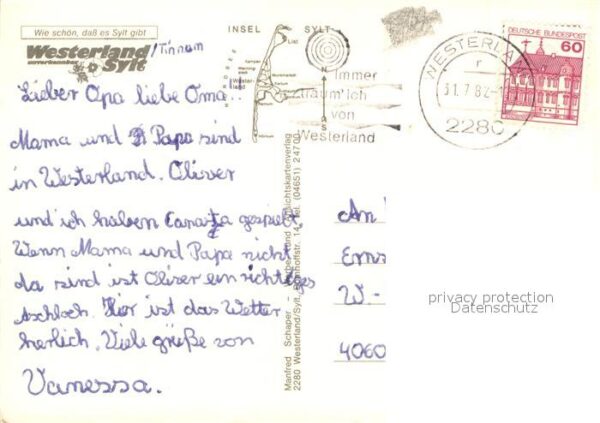 Wie schön, daß es Sylt gibt
Westerland /Tinnum
Sylt
INSEL SYLT
List
Kampen
Westerland
Immer
von
Westerland
WESTERLAN
31.7.82
2280
DEUTSCHE BUNDESPOST
60
Lieber Opa liebe Oma..
Mama und Papa sind
in Westerland. Oliver
und ich haben gespielt.
Wenn Mama und Papa nicht
da sind ist Oliver ein richtiges
Aschloch. Hir ist das Wetter
herlich. Viele grüße von
Vanessa.
Manfred Schaper - Werbe- und Ansichtskartenverlag
2280 Westerland/Sylt, Bahnhofstr. 14, Tel. (04651) 24700
An
Erns
W-
4060
privacy protection
Datenschutz